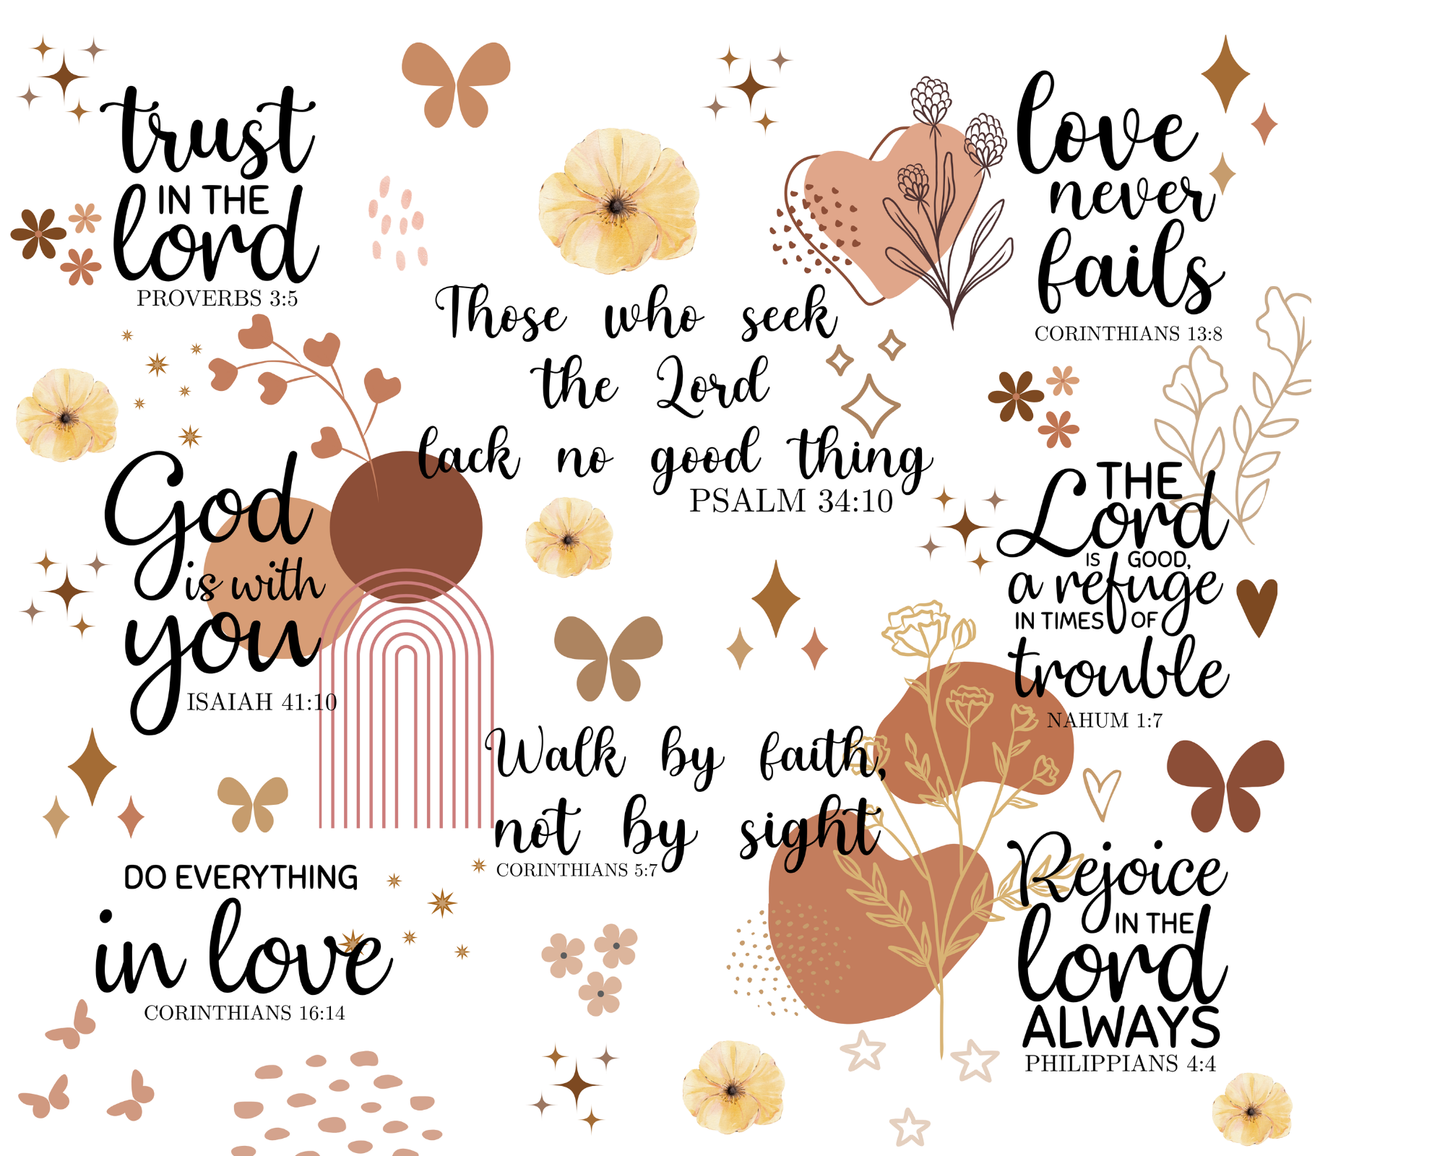 trust
IN THE
lord
PROVERBS 3:5
Those who seek
the Lord
lack no good thing
PSALM 34:10
love
never
fails
CORINTHIANS 13:8
God
is with
you
ISAIAH 41:10
THE
Lord
IS GOOD,
a refuge
IN TIMES OF
trouble
NAHUM 1:7
Walk by faith,
not by sight
CORINTHIANS 5:7
DO EVERYTHING
in love
CORINTHIANS 16:14
Rejoice
IN THE
lord
ALWAYS
PHILIPPIANS 4:4